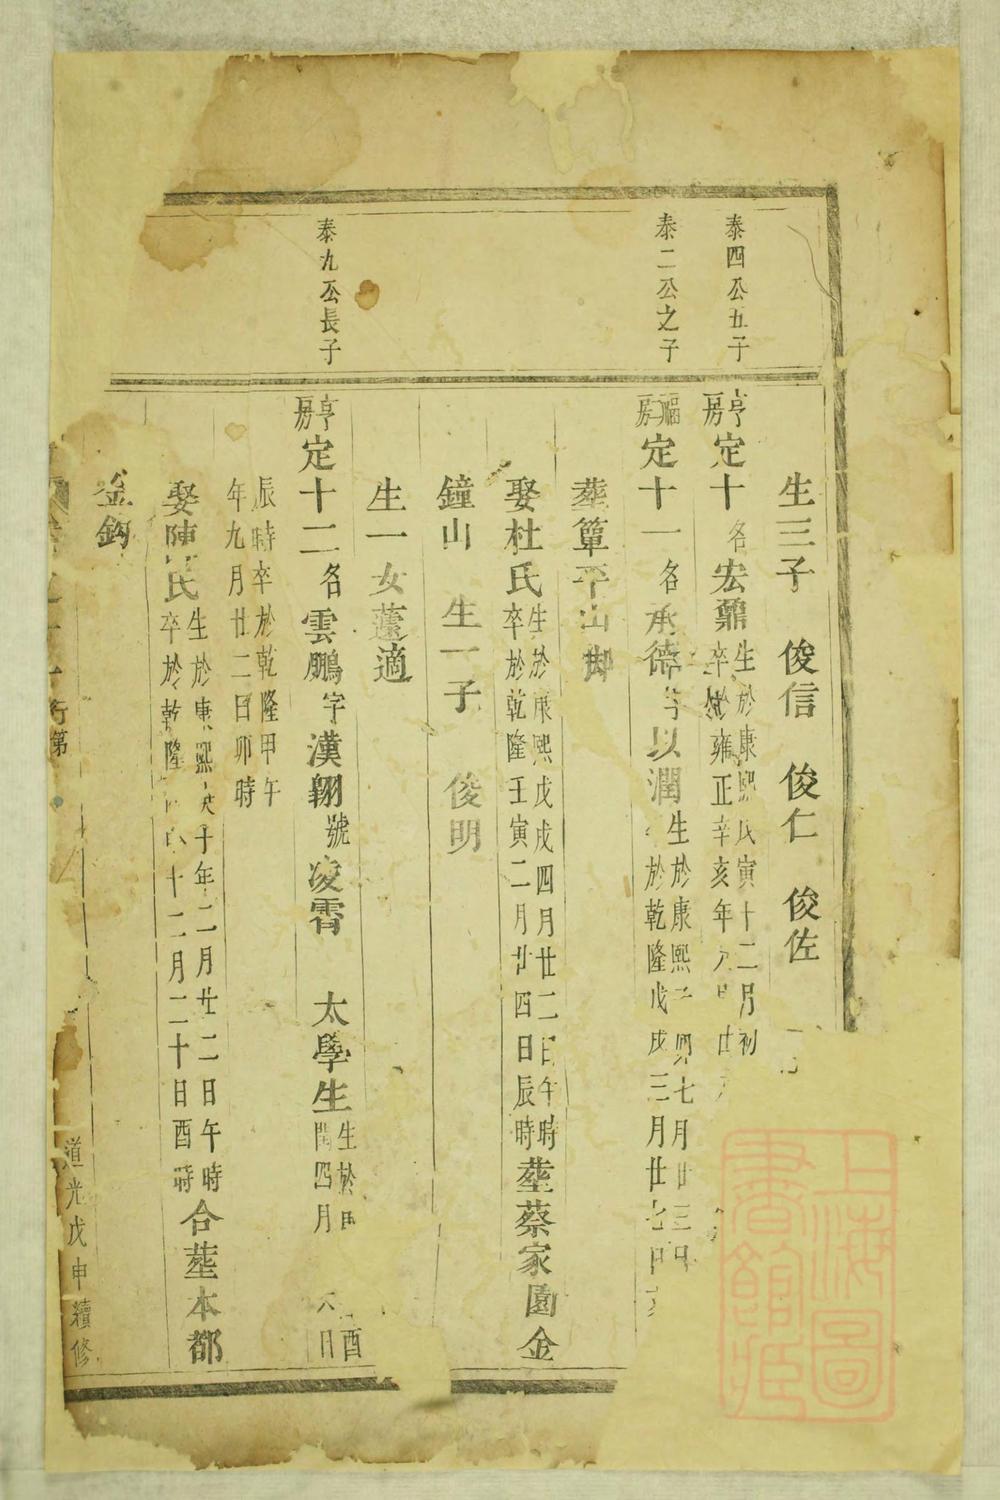 生三子 俊信 俊仁 俊佐
泰四公五子
亨房定十名宏鼐生於康熙 寅十二月初
卒於雍正辛亥年
泰二公之子
福房定十一名承德字以潤生於康熙 七月廿三日
於乾隆戊戌三月廿七日
葬簞平山脚
娶杜氏生於康熙戊戌四月廿二日午時
卒於乾隆壬寅二月廿四日辰時
葬蔡家園金
鐘山 生一子 俊明
生一女蓮適
泰九公長子
亨房定十二名雲鵬字漢翺號凌霄 太學生生於 酉
閏四月 日
辰時卒於乾隆甲午
年九月廿二日卯時
娶陳氏生於康熙 年二月廿二日午時
卒於乾隆 十二月二十日酉時
合葬本都
釜鈎
行第
道光戊申續修
上海圖書館藏